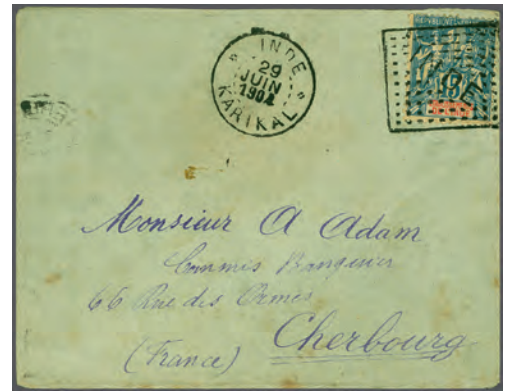 INDE
29
JUIN
1902
KARIKAL
Monsieur A Adam
Commis Banquier
66 Rue des Ormes
Cherbourg
(France)